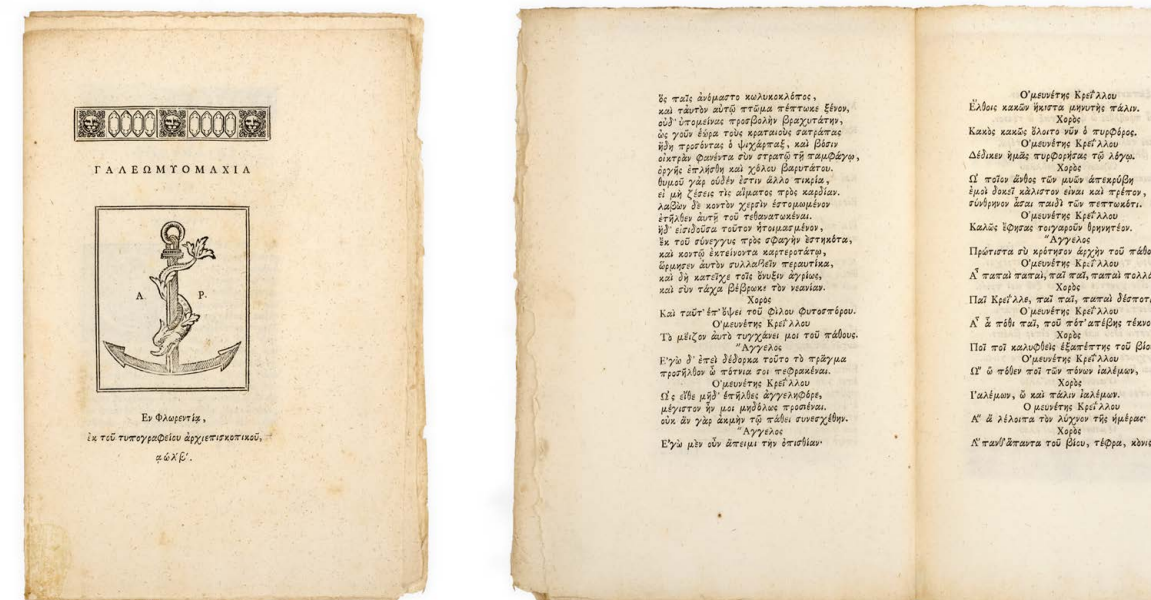 ΓΑΛΕΩΜΥΟΜΑΧΙΑ
Α. Ρ.
Εν Φλωρεντίᾳ,
ἐκ τοῦ τυπογραφείου ἀρχιεπισκοπικοῦ,
ὃς παῖς ἀνόμαστο κωλυκοκλόπος,
καὶ ταυτὸν αὐτῷ πτῶμα πέπτωκε ξένον,
οὐδ' ὑπομείνας προσβολὴν βραχυτάτην,
ὡς γοῦν ἑώρα τοὺς κραταιοὺς σατράπας
ἤδη προσόντας ὁ ψιχάρπαξ, καὶ βόσιν
οἰκτρὰν φανέντα σὺν στρατῷ τῇ παμφάγῳ,
ὀργῆς ἐπλήσθη καὶ χόλου βαρυτάτου.
θυμοῦ γὰρ οὐδέν ἐστιν ἄλλο πικρία,
εἰ μὴ ζέσεις τὶς αἵματος πρὸς καρδίαν.
λαβὼν δὲ κοντὸν χερσὶν ἐστομωμένον
ἐπῆλθεν αὐτῇ τοῦ τεθανατωκέναι.
ἡδ' εἰσιδοῦσα τοῦτον ἡτοιμασμένον,
ἐκ τοῦ σύνεγγυς πρὸς σφαγὴν ἑστηκότα,
καὶ κοντῷ ἐκτείνοντα καρτεροτάτῳ,
ὥρμησεν ἀυτὸν συλλαβεῖν περαυτίκα,
καὶ δὴ κατεῖχε τοῖς ὄνυξιν ἀγρίως,
καὶ σὺν τάχα βέβρωκε τὸν νεανίαν.
Χορὸς
Καὶ ταῦτ' ἐπ' ὄψει τοῦ φίλου φυτοσπόρου.
Ο'μευνέτης Κρεΐλλου
Τὸ μεῖζον ἀυτὸ τυγχάνει μοι τοῦ πάθους.
Ἄγγελος
Ε'γὼ δ' ἐπεὶ δέδορκα τοῦτο τὸ πρᾶγμα
προσῆλθον ὦ πότνια σοι πεφρακέναι.
Ο'μευνέτης Κρεΐλλου
Ω῾ς εἴθε μήδ' ἐπῆλθες ἀγγεληφόρε,
μέγιστον ἦν μοι μηδόλως προσιέναι.
οὐκ ἂν γὰρ ἀκμὴν τῷ πάθει συνεσχέθην.
Ἄγγελος
Ε'γὼ μὲν οὖν ἄπειμι τὴν ὀπισθίαν·
Ο'μευνέτης Κρεΐλλου
Ελθοις κακῶν ἥκιστα μηνυτὴς πάλιν.
Χορὸς
Κακὸς κακῶς ὄλοιτο νῦν ὁ πυρφόρος.
Ο'μευνέτης Κρεΐλλου
Δέδικεν ἡμᾶς πυρφορήσας τῷ λόγῳ.
Χορὸς
Ω῏ ποῖον ἄνθος τῶν μυῶν ἀπεκρύβη
ἐμοὶ δοκεῖ κάλιστον εἶναι καὶ πρέπον,
σύνθρηνον ᾆσαι παιδὶ τῶν πεπτωκότι.
Ο'μευνέτης Κρεΐλλου
Καλῶς ἔφησας τοιγαροῦν θρηνητέον.
Ἄγγελος
Πρώτιστα σὺ κρότησον ἀρχὴν τοῦ πάθο
Ο'μευνέτης Κρεΐλλου
Α῏ παπαὶ παπαὶ, παῖ παῖ, παπαὶ πολλά
Χορὸς
Παῖ Κρεΐλλε, παῖ παῖ, παπαὶ δέσποτ
Ο'μευνέτης Κρεΐλλου
Α῏ ἆ πόθι παῖ, ποῦ πότ' απέβης τέκνο
Χορὸς
Ποῖ ποῖ καλυφθεὶς ἐξαπέπτης τοῦ βίο
Ο'μευνέτης Κρεΐλλου
Ω῏ ὢ πόθεν ποῖ τῶν πόνων ἰαλέμων,
Χορὸς
Ι'αλέμων, ὢ καὶ πάλιν ἰαλέμων.
Ο μευνέτης Κρεΐλλου
Α῏ ἆ λέλοιπα τὸν λύχνον τῆς ἡμέρας·
Χορὸς
τοῦ βίου, τέφρα, κόνις